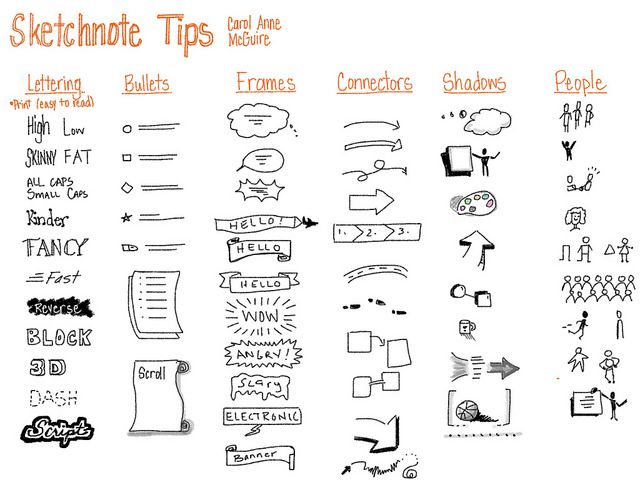 Sketchnote Tips
Carol Anne
McGuire
Lettering
*Print (easy to read)
High Low
SKINNY FAT
ALL CAPS
SMALL CAPS
Kinder
FANCY
Fast
Reverse
BLOCK
3D
DASH
Script
Bullets
Scroll
Frames
HELLO!
HELLO
HELLO
WOW
ANGRY!
Scary
ELECTRONIC
Banner
Connectors
1. 2. 3.
Shadows
People